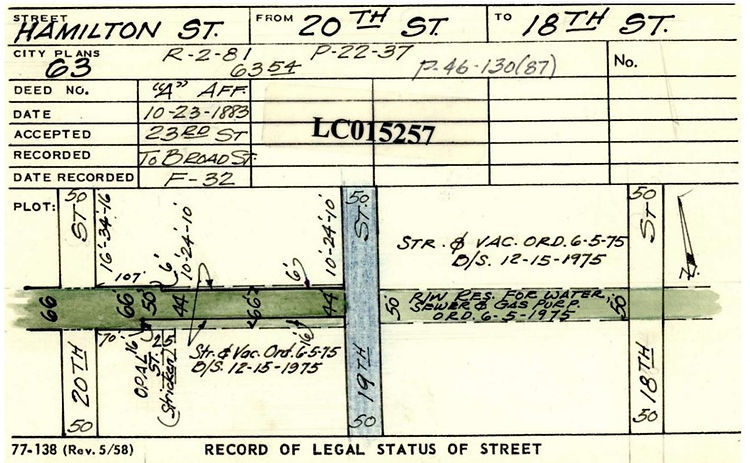 STREET HAMILTON ST. FROM 20TH ST. TO 18TH ST.
CITY PLANS R-2-81 P-22-37 No.
63 6354 P-46-130(87)
DEED NO. "A" AFF.
DATE 10-23-1883
ACCEPTED 23RD ST
LC015257
RECORDED TO BROAD ST.
DATE RECORDED F-32
PLOT:
50
ST.
16'-34'-16'
10'-24'-10'
10'-24'-10'
50
ST.
50
ST.
STR. & VAC. ORD. 6-5-75
B/S. 12-15-1975
107'
6'
6'
66'
66'
50'
44'
66'
44'
50'
R/W RES. FOR WATER,
SEWER & GAS PURP.
ORD. 6-5-1975
50'
16'
16'
Str. & Vac. Ord. 6-5-75
B/S. 12-15-1975
OPAL ST.
(Stricken)
20TH
50
19TH
50
18TH
50
77-138 (Rev. 5/58) RECORD OF LEGAL STATUS OF STREET